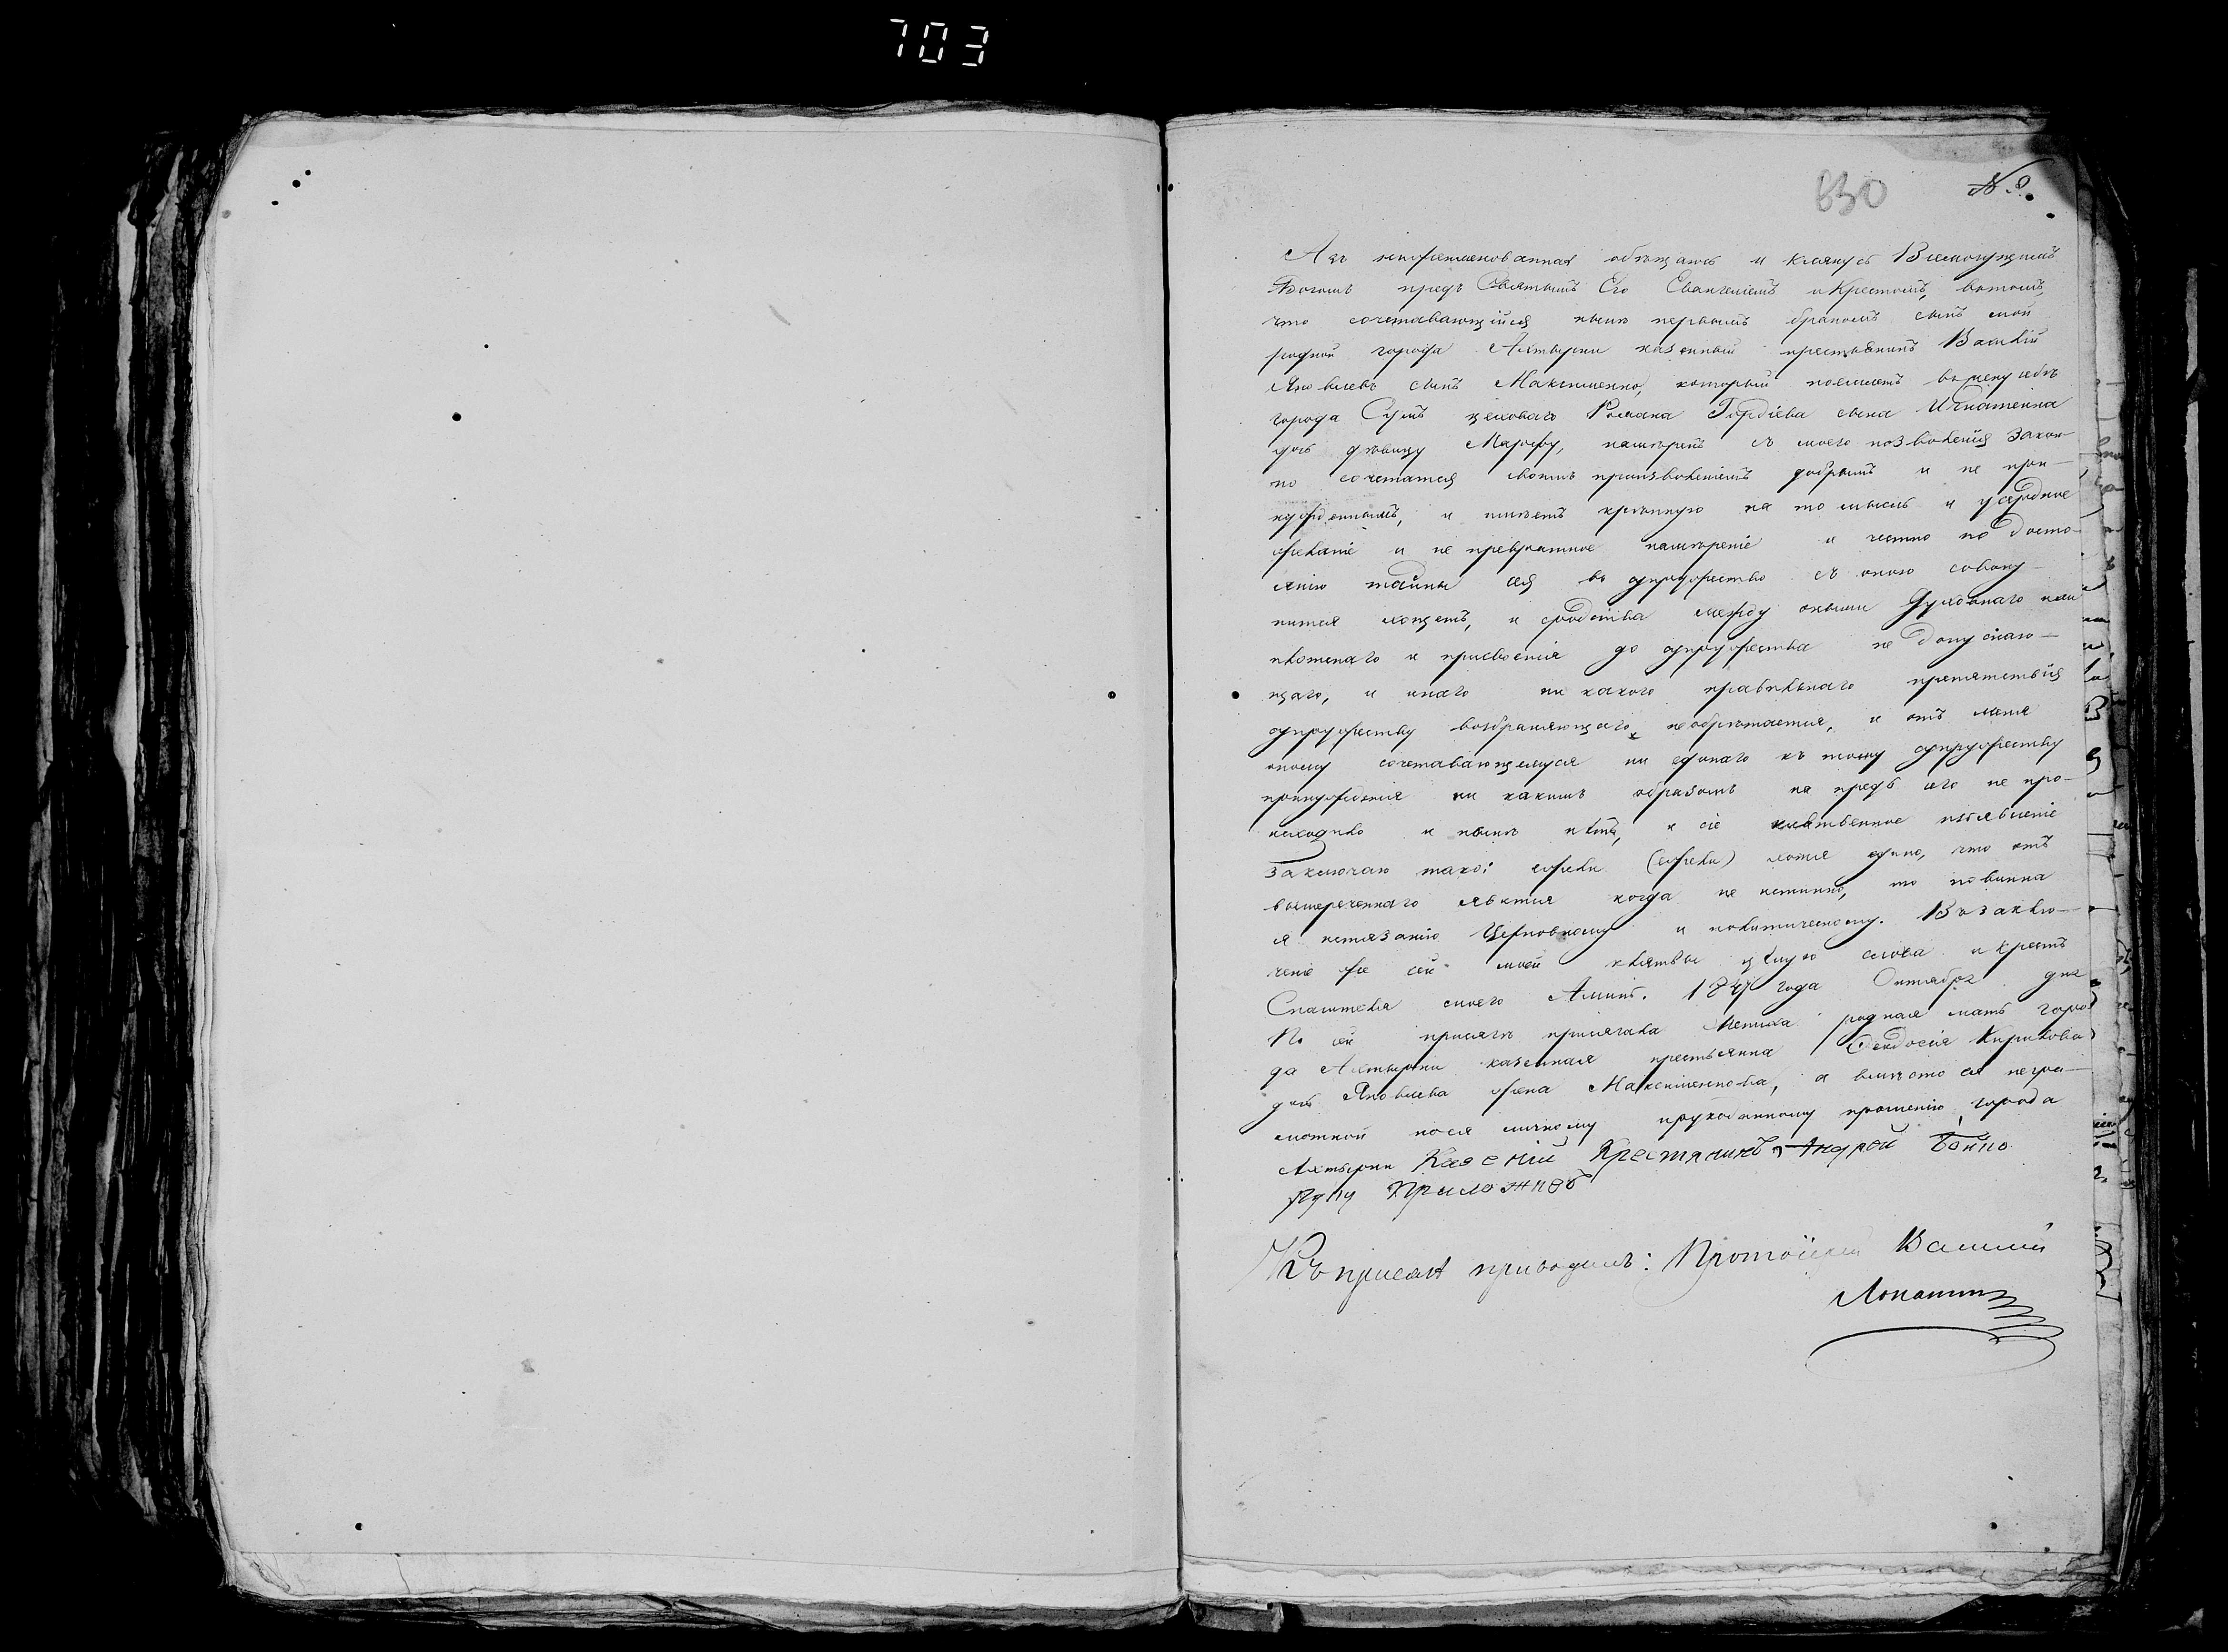 703
630
№ 8.
Азъ нижеименованная обѣщаюсь и клянусь Всемогущимъ
Богомъ предъ Святымъ Его Евангеліемъ и Крестомъ, вътомъ,
что сочетавающійся нынѣ первымъ бракомъ сынъ мой
родной города Ахтырки казенный крестьянинъ Василій
Яковлевъ сынъ Максименко, который поемлетъ въжену себѣ
города Сумъ цеховаго Романа Гордіева сына Игнатенка
дочь дѣвицу Марфу, намѣренъ съ моего позволенія закон-
но сочетатся своимъ произволеніемъ добрымъ и не при-
нужденнымъ, и имѣетъ крѣпкую на то мысль и усердное
желаніе и не превратное намѣреніе и честно по досто-
янію тайны сея въ супружество съ оною совоку-
пится хощетъ, и сродства между оными Духовнаго или
плотскаго и присвоенія до супружества не допускаю-
щаго, и инаго ни какого правильнаго препятствія
супружеству возбраняющаго, необрѣтается, и отъ мене
оному сочетавающемуся ни единаго къ тому супружеству
принужденія ни какимъ образомъ на предъ сего не про-
исходило и нынѣ нѣтъ, и сіе клятвенное изъявленіе
заключаю тако: ежели (ежели) хотя едино, что отъ
вышереченнаго явится когда не истинно, то повинна
я истязанію Церковному и политическому. Възаклю-
ченіе же сей моей клятвы цѣлую слова и крестъ
Спасителя моего Аминь. 1847 года Октября дня
По сей присягѣ присягала жениха родная мать горо-
да Ахтырки казенная крестьянка Феодосія Кирилова
дочь Яковлева жена Максименкова, а вмѣсто ея негра-
мотной поея личному и рукоданному прошенію города
Ахтырки Казеній Крестянинъ Андрей Бойко
руку Приложилъ
Къ присягѣ приводилъ: Протоіерей Василій
Лопатинъ